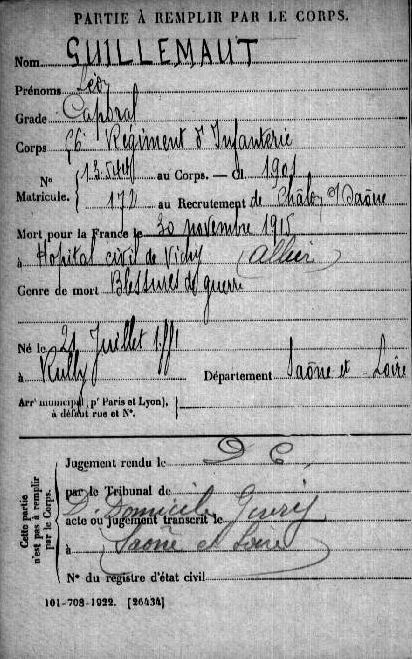 PARTIE À REMPLIR PAR LE CORPS.
Nom GUILLEMAUT
Prénoms Léon
Grade Caporal
Corps 56e Régiment d'Infanterie
N° Matricule. 13.544 au Corps. — Cl. 1901
172 au Recrutement de Châlon s/Saône
Mort pour la France le 30 novembre 1915
à Hôpital civil de Vichy (Allier)
Genre de mort Blessures de guerre
Né le 21 Juillet 1881
à Rully Département Saône et Loire
Arr' municipal (p' Paris et Lyon),
à défaut rue et N°.
Cette partie n'est pas à remplir par le Corps.
Jugement rendu le D C
par le Tribunal de
D. Domicile Givry
acte ou jugement transcrit le
à Saône et Loire
N° du registre d'état civil
101-708-1922. [26434]